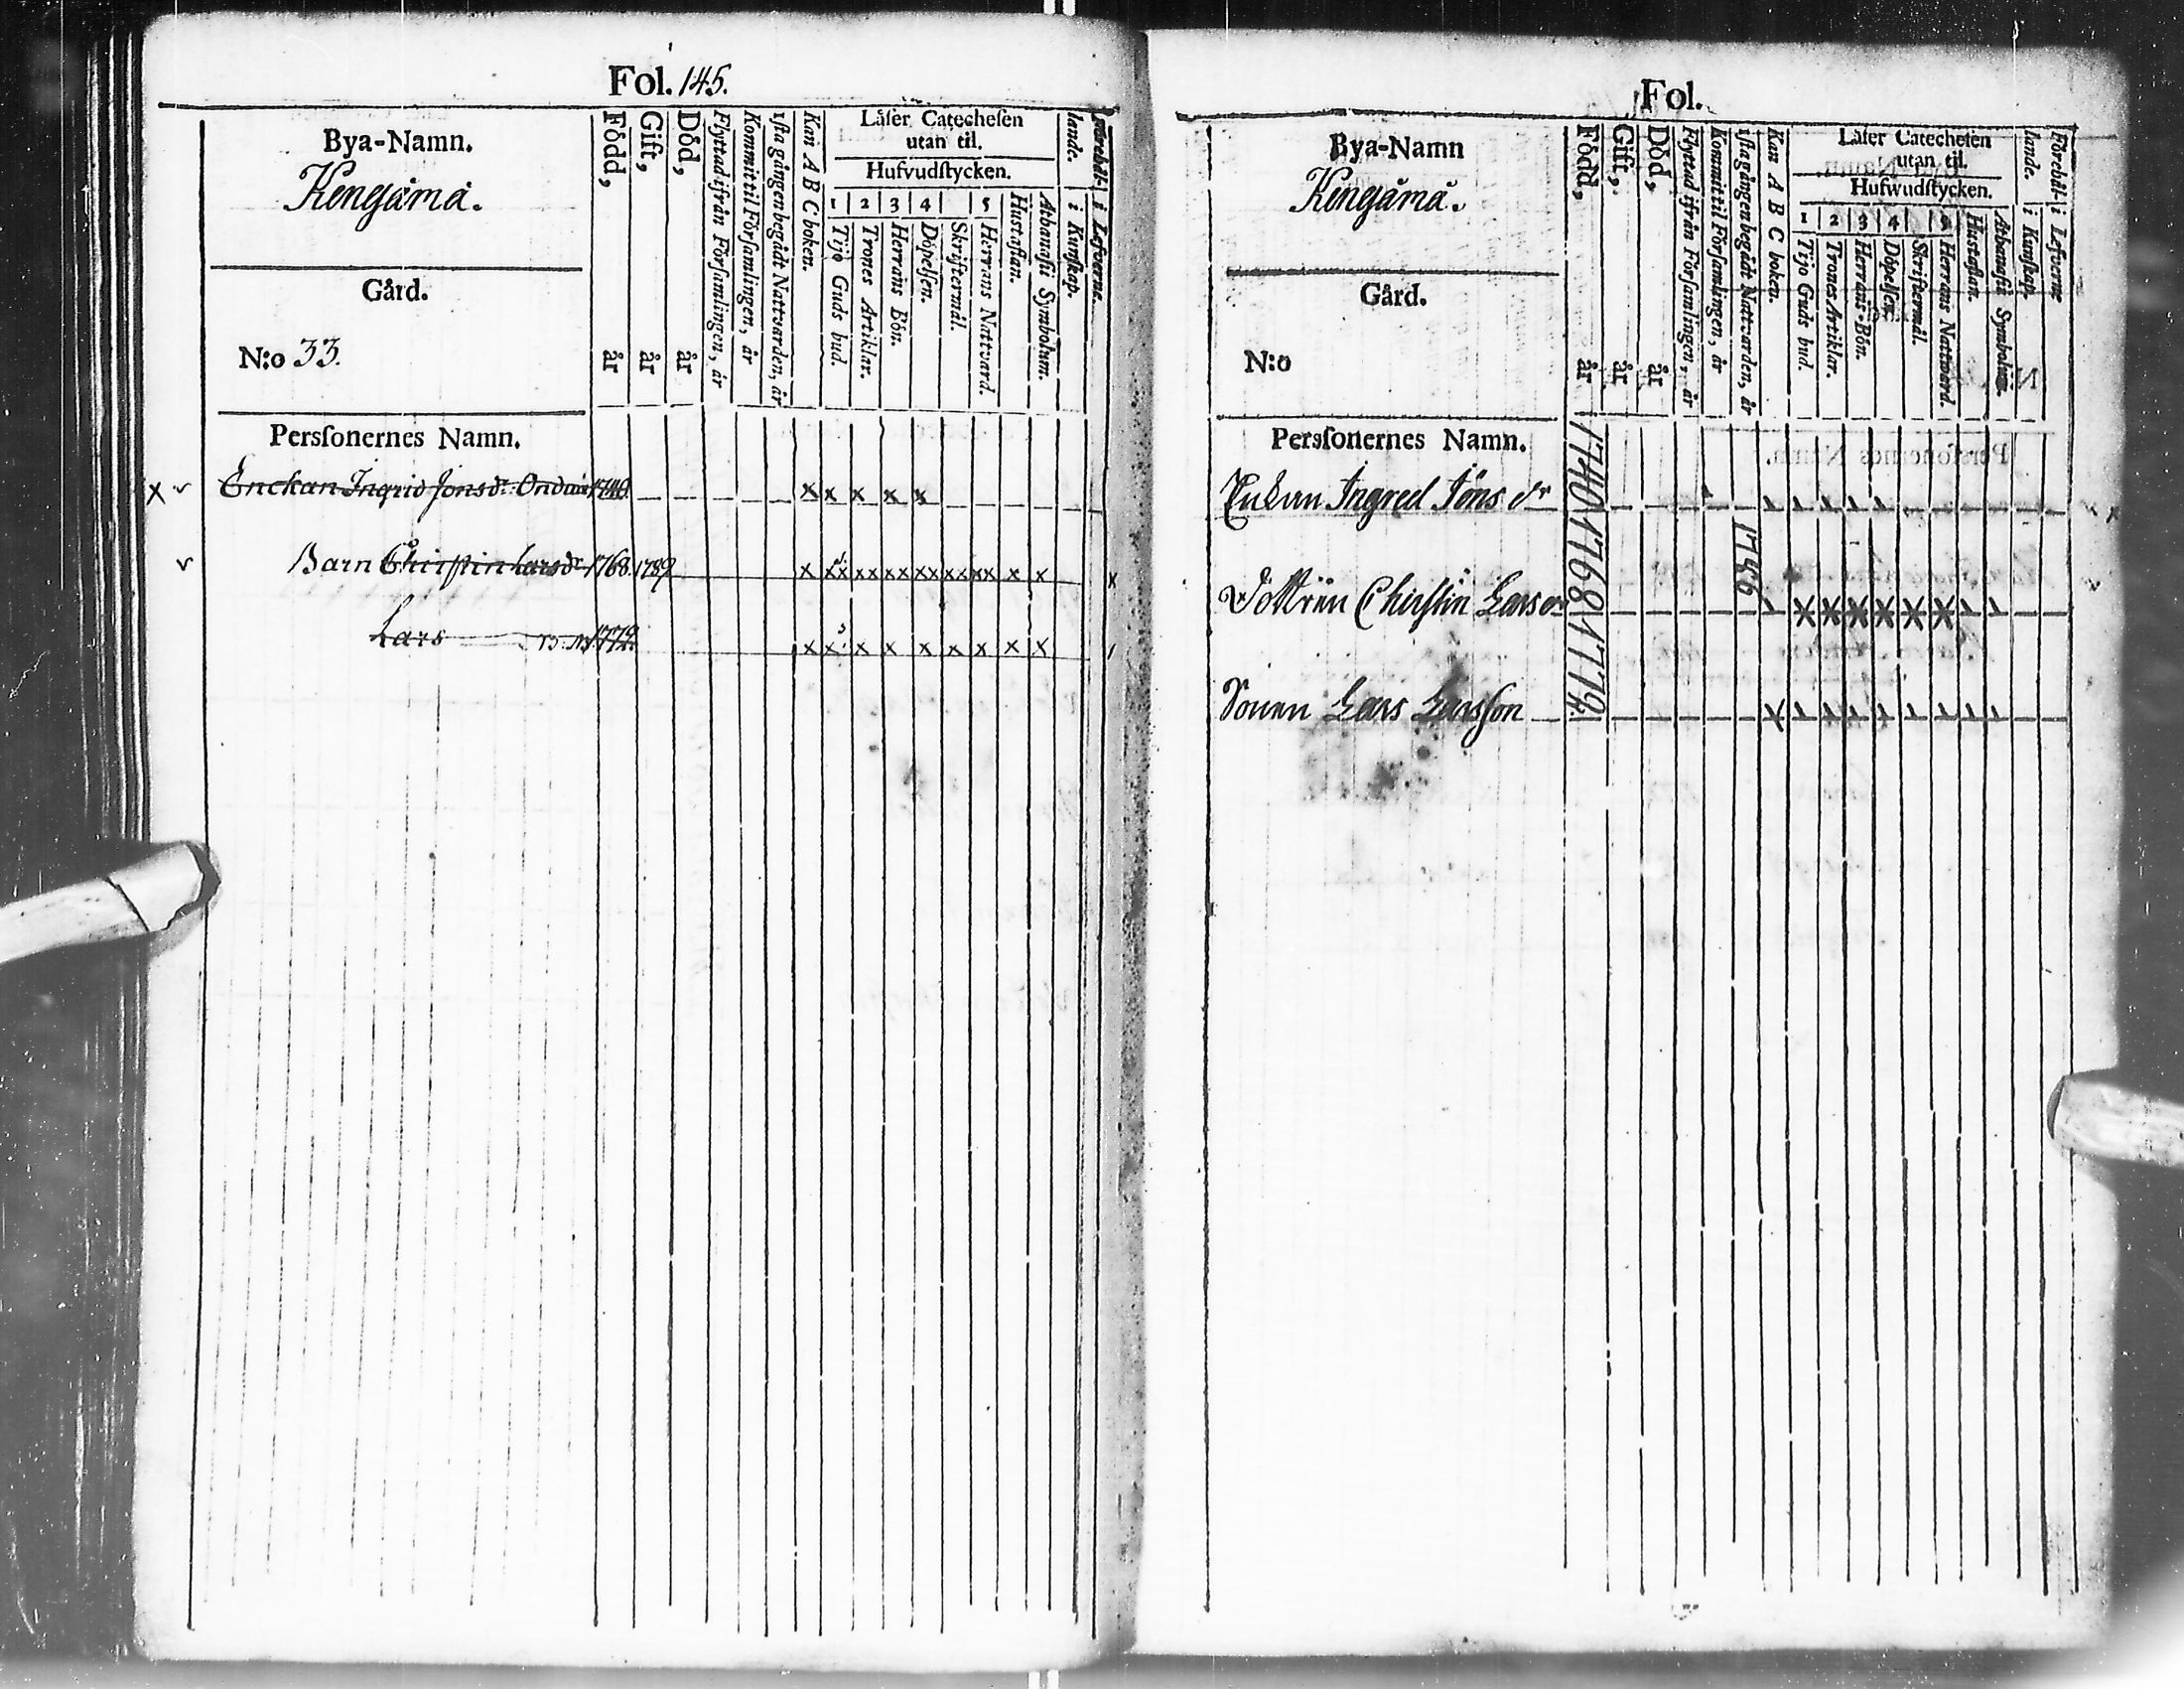 Fol. 145.
Bya-Namn.
Kengämä.
Gård.
N:o 33.
Född, år
Gift, år
Död, år
Flyttad ifrån Församlingen, år
Kommit til Församlingen, år
ista gången begådt Nattvarden, år
Kan A B C boken.
Läser Catechesen
utan til.
Hufvudstycken.
1 2 3 4 5
Tijo Guds bud.
Trones Artiklar.
Herrans Bön.
Döpelsen.
Skriftermål.
Herrans Nattvard.
Hustaflan.
Athanasii Symbolum.
lande. i Kunskap.
Förehål- i Lefverne.
Persſonernes Namn.
x v Enckan Ingrid Jonsdr. 1740. x x x x x
v Barn Christin Larsdr 1768. 1789 x xx xx xx xx xx xx x x x
Lars 1779. x x x x x x x x x
Fol.
Bya-Namn
Kengämä.
Gård.
N:o
Född, år
Gift, år
Död, år
Flyttad ifrån Församlingen, år
Kommit til Församlingen, år
ista gången begådt Nattvarden, år
Kan A B C boken.
Läser Catechesen
utan til.
Hufwudstycken.
1 2 3 4 5
Tijo Guds bud.
Trones Artiklar.
Herrans-Bön.
Döpelsen.
Skriftermål.
Herrans Nattvard.
Hustaflan.
Athanasii Symbolum.
lande. i Kunskap.
Förehål- i Lefverne
Persſonernes Namn.
Enkan Ingred Jöns dr 1740
Dottren Christin Lars dr 1768 1786
Sonen Lars Larsson 1779